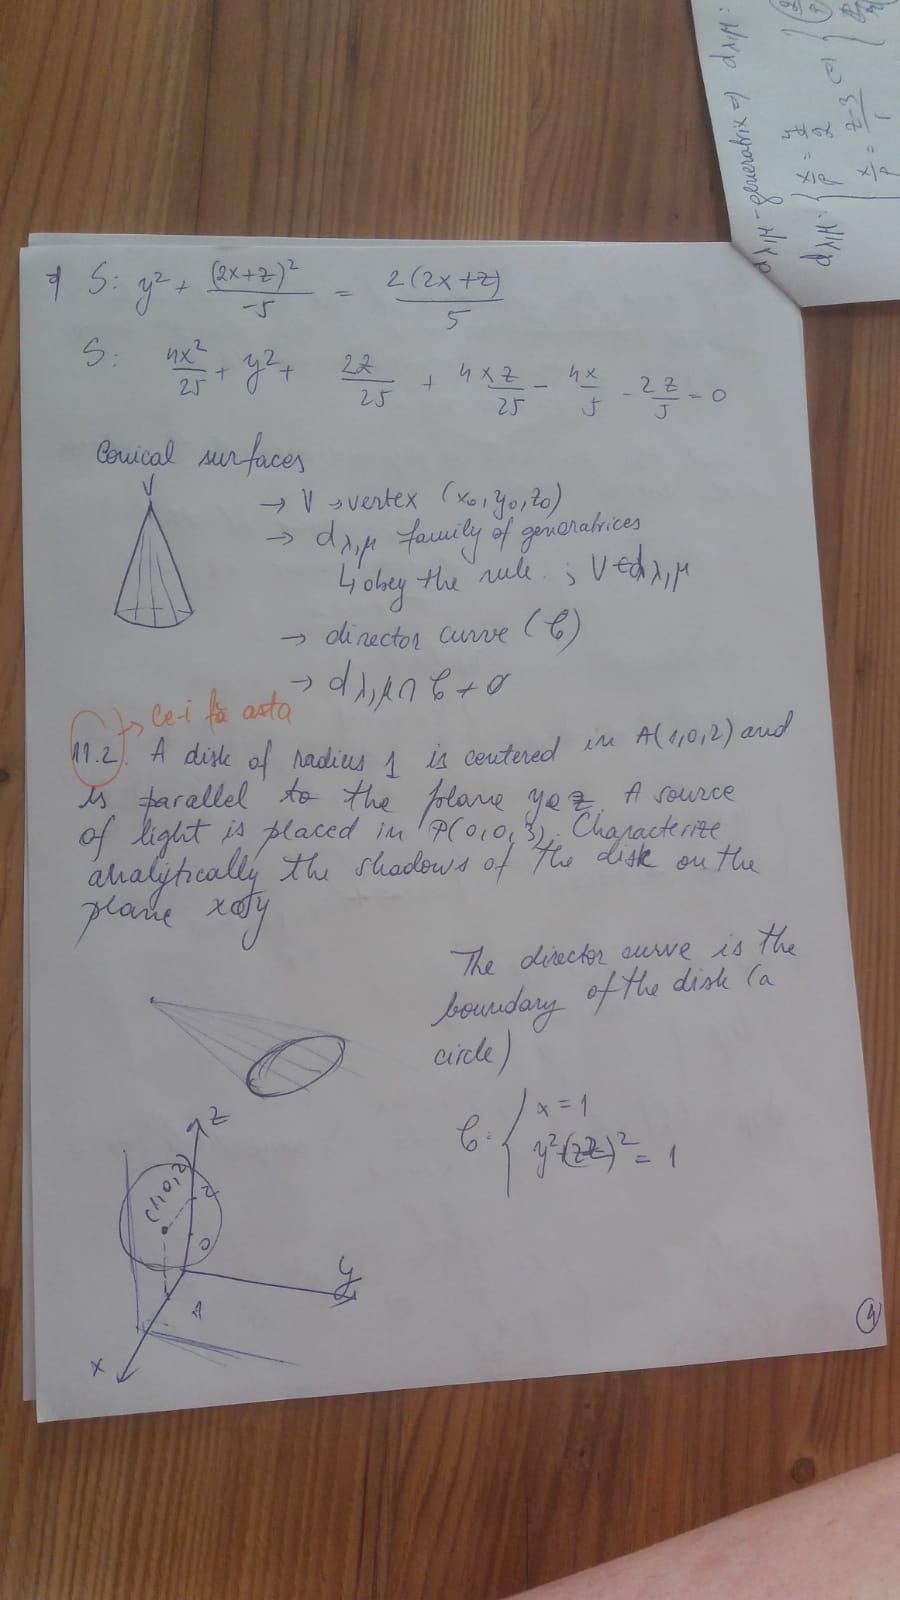 S: y² + (2x+z)²/-5 = 2(2x+z)/5
S: 4x²/25 + y² + 2z/25 + 4xz/25 - 4x/5 - 2z/5 = 0
Conical surfaces
V
→ V → vertex (x₀, y₀, z₀)
→ dλ,μ family of generatrices
↳ obey the rule : V∈dλ,μ
→ director curve (C)
→ dλ,μ ∩ C ≠ ∅
→ Ce-i fă asta
11.2. A disk of radius 1 is centered in A(1,0,2) and
is parallel to the plane yoz. A source
of light is placed in P(0,0,3). Characterize
analytically the shadows of the disk on the
plane xoy
The director curve is the
boundary of the disk (a
circle)
C: { x = 1
y²+(z-2)² = 1
z
(1,0,2)
2
O
y
1
x
4
dλ,μ - generatrix => dλ,μ:
dλ,μ: { x/p = y/2
x/p = z-3/1